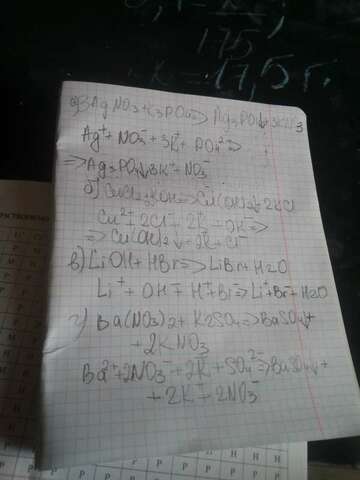 175
17,5 г.
а) 3AgNO3+K3PO4=>Ag3PO4↓+3KNO3
Ag⁺+NO3⁻+3K⁺+PO4²⁻=>
=>Ag3PO4↓+3K⁺+NO3⁻
б) CuCl2+2KOH=>Cu(OH)2↓+2KCl
Cu²⁺+2Cl⁻+2K⁺+OH⁻=>
=>Cu(OH)2↓+2K⁺+Cl⁻
в) LiOH+HBr=>LiBr+H2O
Li⁺+OH⁻+H⁺+Br⁻=>Li⁺+Br⁻+H2O
г) Ba(NO3)2+K2SO4=>BaSO4↓+
+2KNO3
Ba²⁺+2NO3⁻+2K⁺+SO4²⁻=>BaSO4↓+
+2K⁺+2NO3⁻